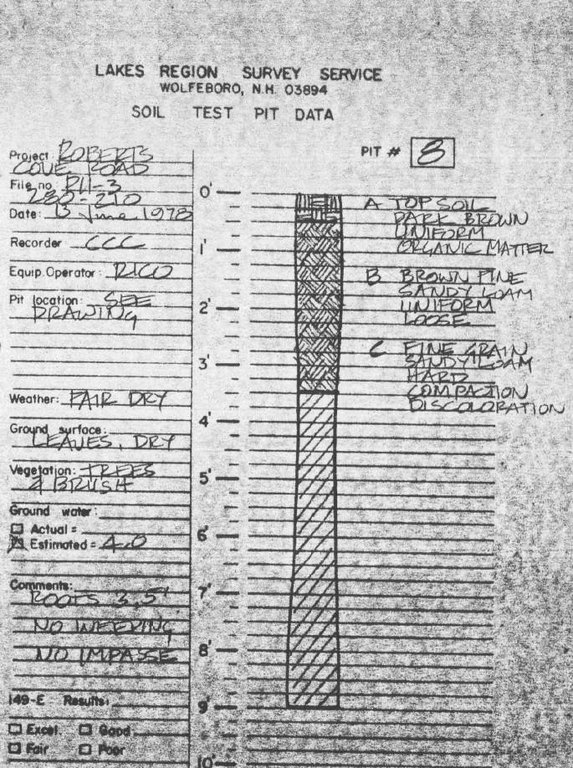 LAKES REGION SURVEY SERVICE
WOLFEBORO, N.H. 03894
SOIL TEST PIT DATA
PIT # 8
Project: ROBERTS
COVE ROAD
File no. RH-3
280-210
Date: 13 June 1978
Recorder CCC
Equip. Operator: RICO
Pit location: SEE
DRAWING
Weather: FAIR DRY
Ground surface:
LEAVES, DRY
Vegetation: TREES
& BRUSH
Ground water:
Actual =
Estimated = 4.0
Comments:
ROOTS 3.5'
NO WEEPING
NO IMPASSE
149-E Results:
Excel. Good
Fair Poor
0'
1'
2'
3'
4'
5'
6'
7'
8'
9'
10'
A TOP SOIL
DARK BROWN
UNIFORM
ORGANIC MATTER
B BROWN FINE
SANDY LOAM
UNIFORM
LOOSE
C FINE GRAIN
SANDY LOAM
HARD
COMPACTION
DISCOLORATION